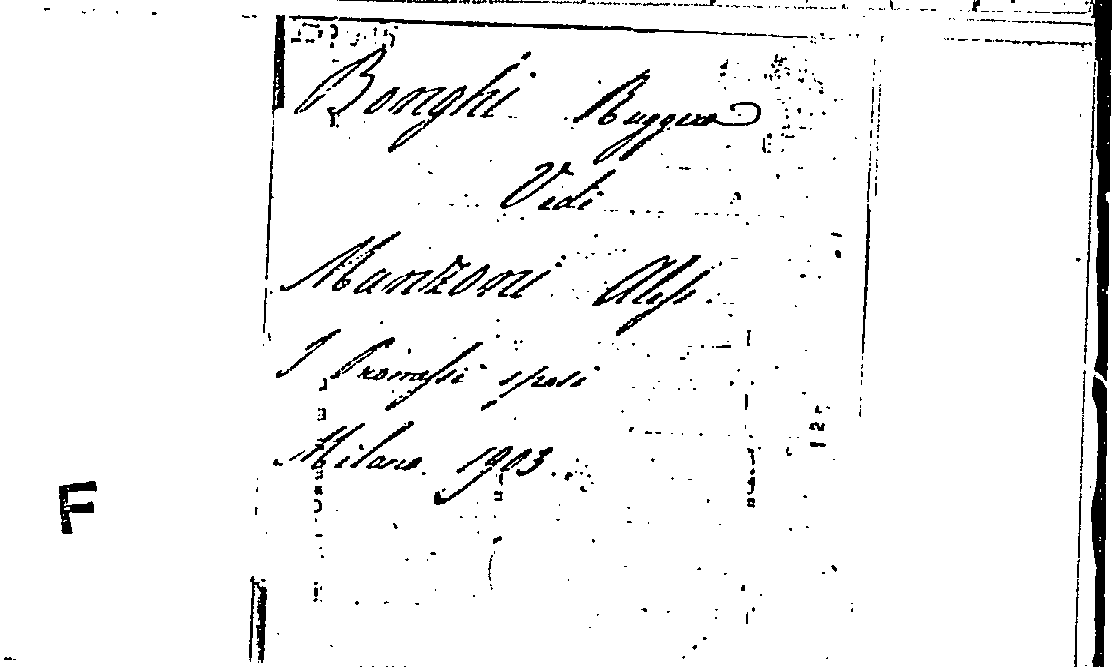 Bonghi Ruggero
Vedi
Manzoni Aless.
I Promessi sposi
Milano. 1903.
F